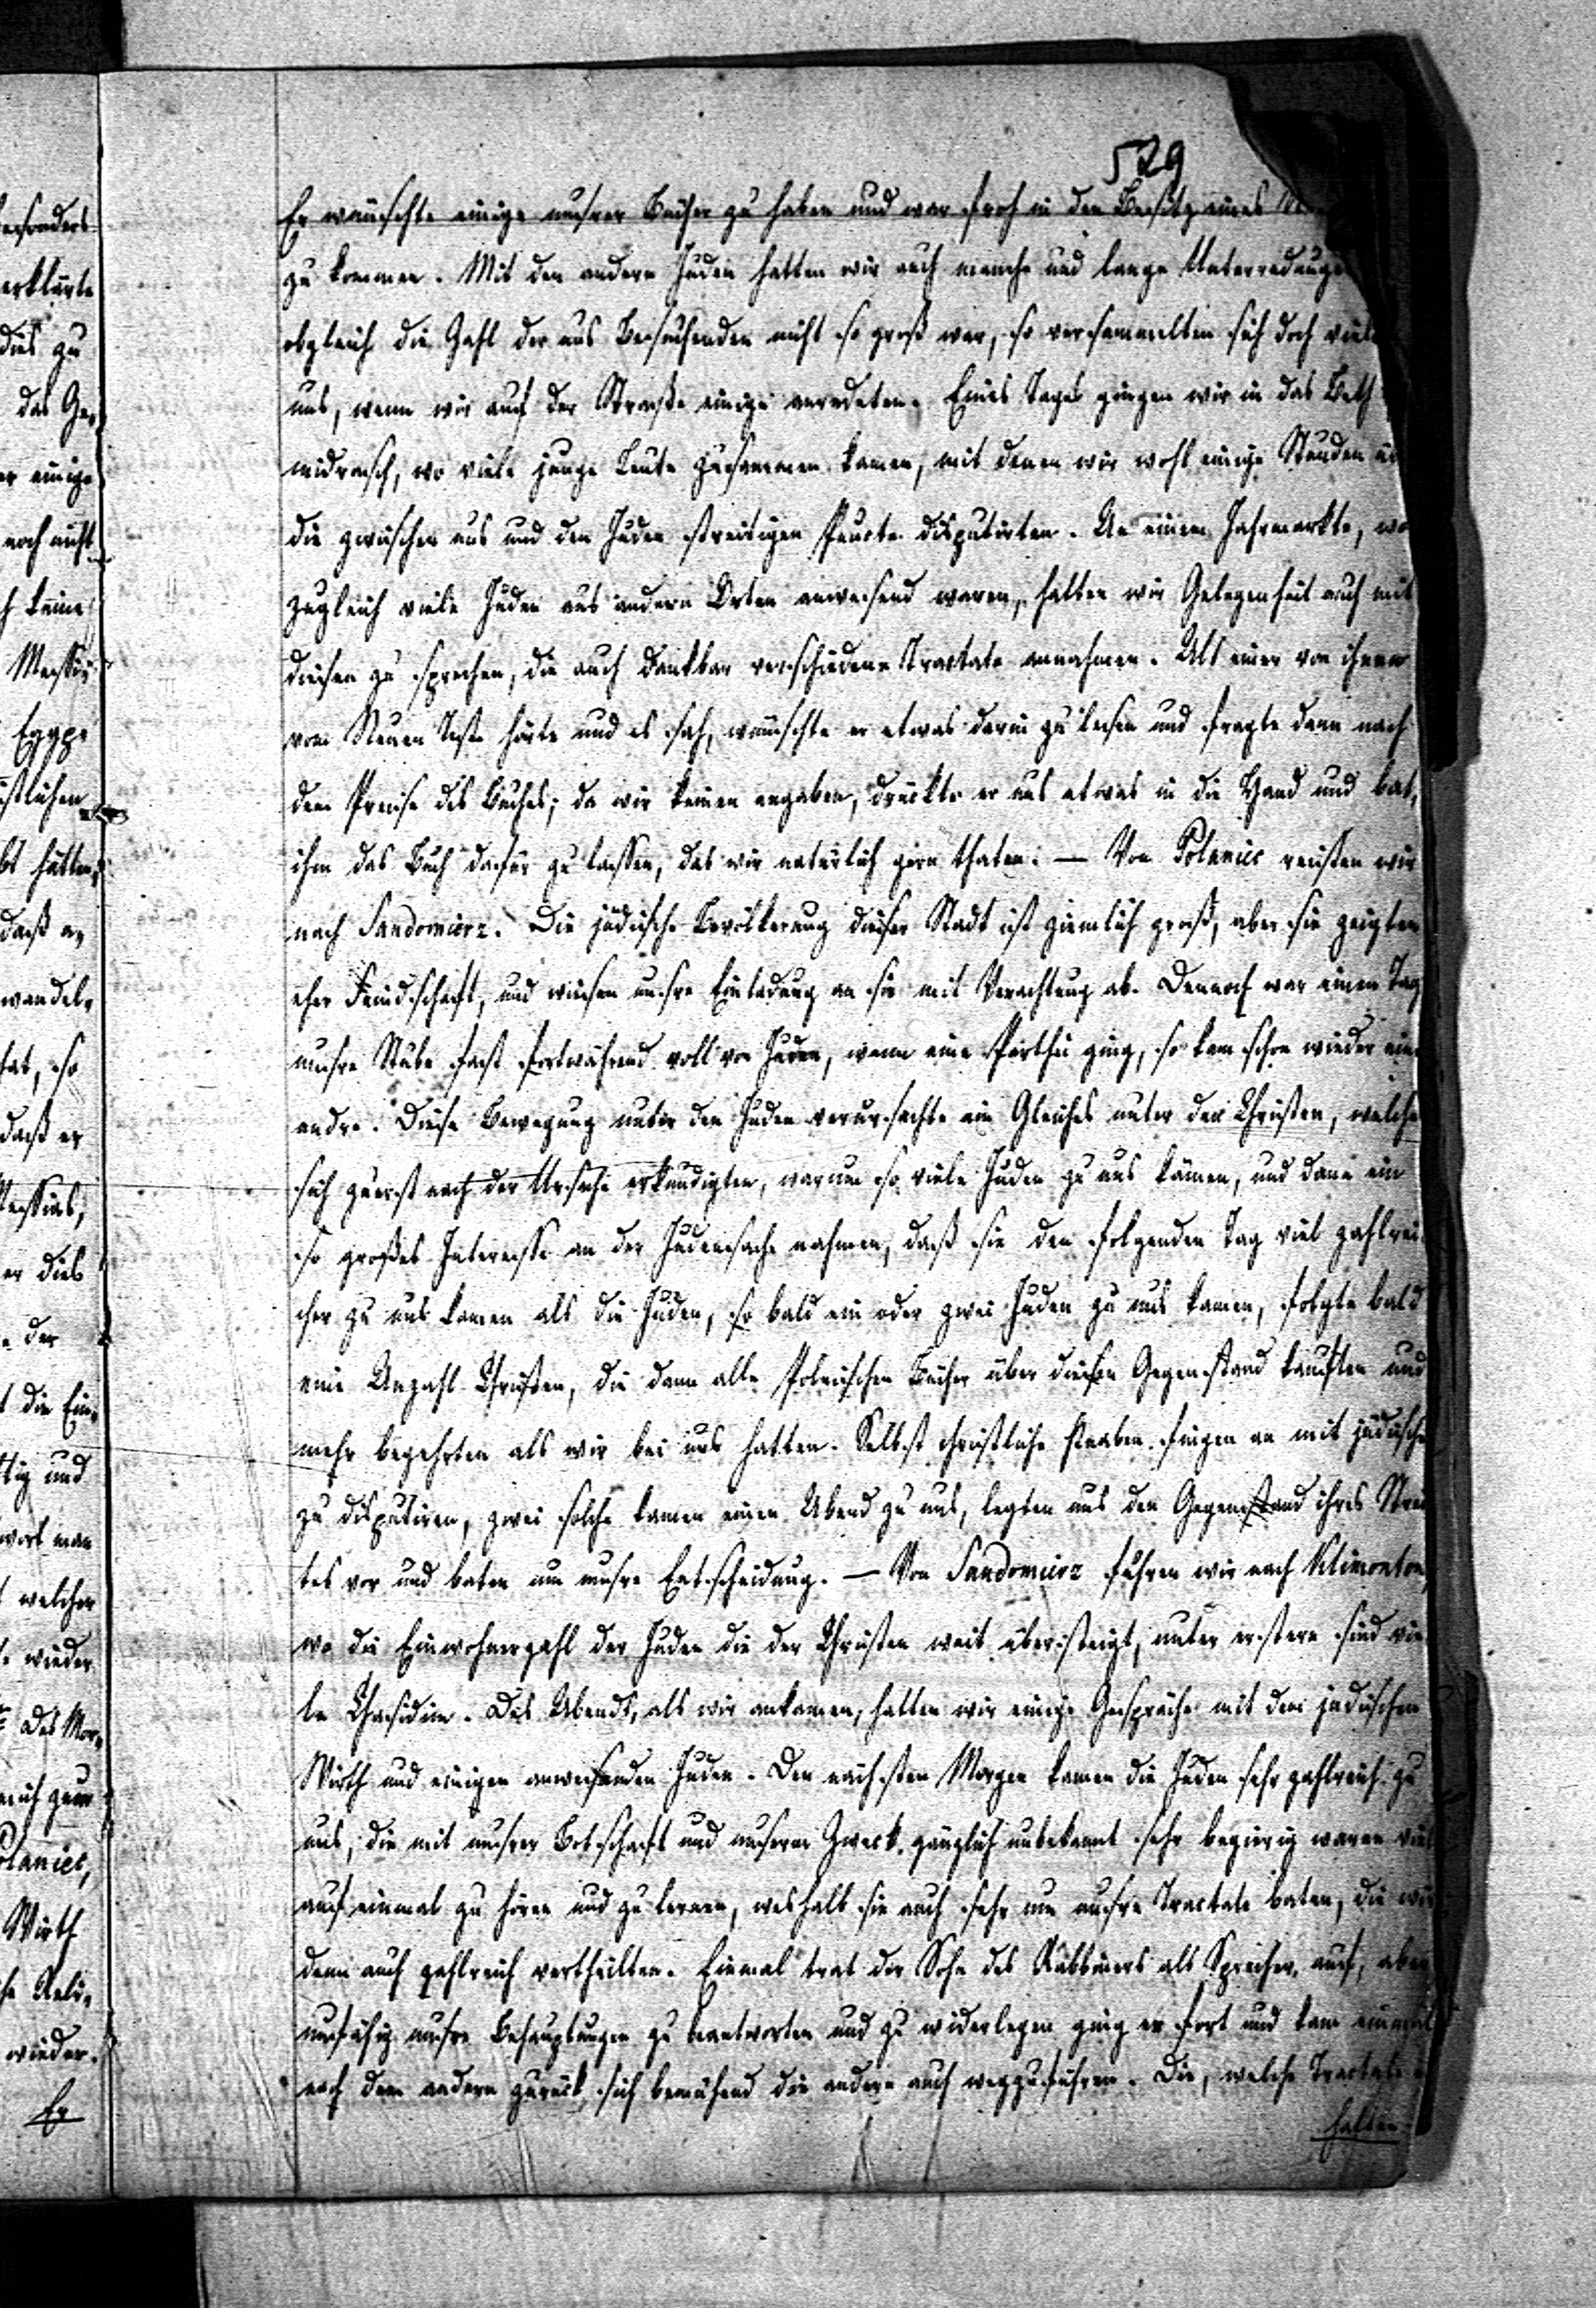 529
Er wünschte einige unsrer Bücher zu haben und war froh in den Besitz eines
zu kommen. Mit den andern Juden hatten wir auch manche und lange Unterredunge
obgleich die Zahl der uns Besuchenden nicht so groß war, so versammelten sich doch viele
uns, wenn wir auf der Straße einige anredeten. Eines Tages gingen wir in das Beth
midrasch, wo viele junge Leute zusammen kamen, mit denen wir wohl einige Stunden
die zwischen uns und den Juden streitigen Puncte disputirten. An einem Jahrmarkte, wo
zugleich viele Juden aus andern Orten anwesend waren, hatten wir Gelegenheit auch mit
diesen zu sprechen, die auch dankbar verschiedene Tractate annahmen. Als einer von ihnen
vom Neuen Test. hörte und es sah, wünschte er etwas darin zu lesen und fragte dann nach
dem Preise des Buches; da wir keinen angaben, drückte er uns etwas in die Hand und bat,
ihm das Buch dafür zu lassen, das wir natürlich gern thaten. — Von Polaniec reisten wir
nach Sandomierz. Die jüdische Bevölkerung dieser Stadt ist ziemlich groß, aber sie zeigten
eher Feindschaft, und wiesen unsre Einladung an sie mit Verachtung ab. Dennoch war einen Tag
unsre Stube fast fortwährend voll von Juden, wenn eine Parthei ging, so kam schon wieder eine
andre. Diese Bewegung unter den Juden verursachte ein Gleiches unter den Christen, welche
sich zuerst nach der Ursache erkundigten, warum so viele Juden zu uns kämen, und dann ein
so großes Interesse an der Judensache nahmen, daß sie den folgenden Tag viel zahlrei-
cher zu uns kamen als die Juden, so bald ein oder zwei Juden zu uns kamen, folgte bald
eine Anzahl Christen, die dann alle Polnischen Bücher über diesen Gegenstand kauften und
mehr begehrten als wir bei uns hatten. Selbst christliche Knaben fingen an mit jüdische
zu disputiren, zwei solche kamen einen Abend zu uns, legten uns den Gegenstand ihres Strei
tes vor und baten um unsre Entscheidung. — Von Sandomierz fuhren wir nach Klimonton,
wo die Einwohnerzahl der Juden die der Christen weit übersteigt, unter erstern sind vie
le Chasidim. Des Abends, als wir ankamen, hatten wir einige Gespräche mit dem jüdischen
Wirth und einigen anwesenden Juden. Den nächsten Morgen kamen die Juden sehr zahlreich zu
uns, die mit unsrer Botschaft und unserm Zweck gänzlich unbekannt sehr begierig waren viel
auf einmal zu hören und zu lernen, weshalb sie auch sehr um unsre Tractate baten, die wir
denn auch zahlreich vertheilten. Einmal trat der Sohn des Rabbiners als Sprecher auf, aber
unfähig unsre Behauptungen zu beantworten und zu widerlegen ging er fort und kam einmal
nach dem andern zurück sich bemühend die andern auch wegzuführen. Die, welche Tractate
halten